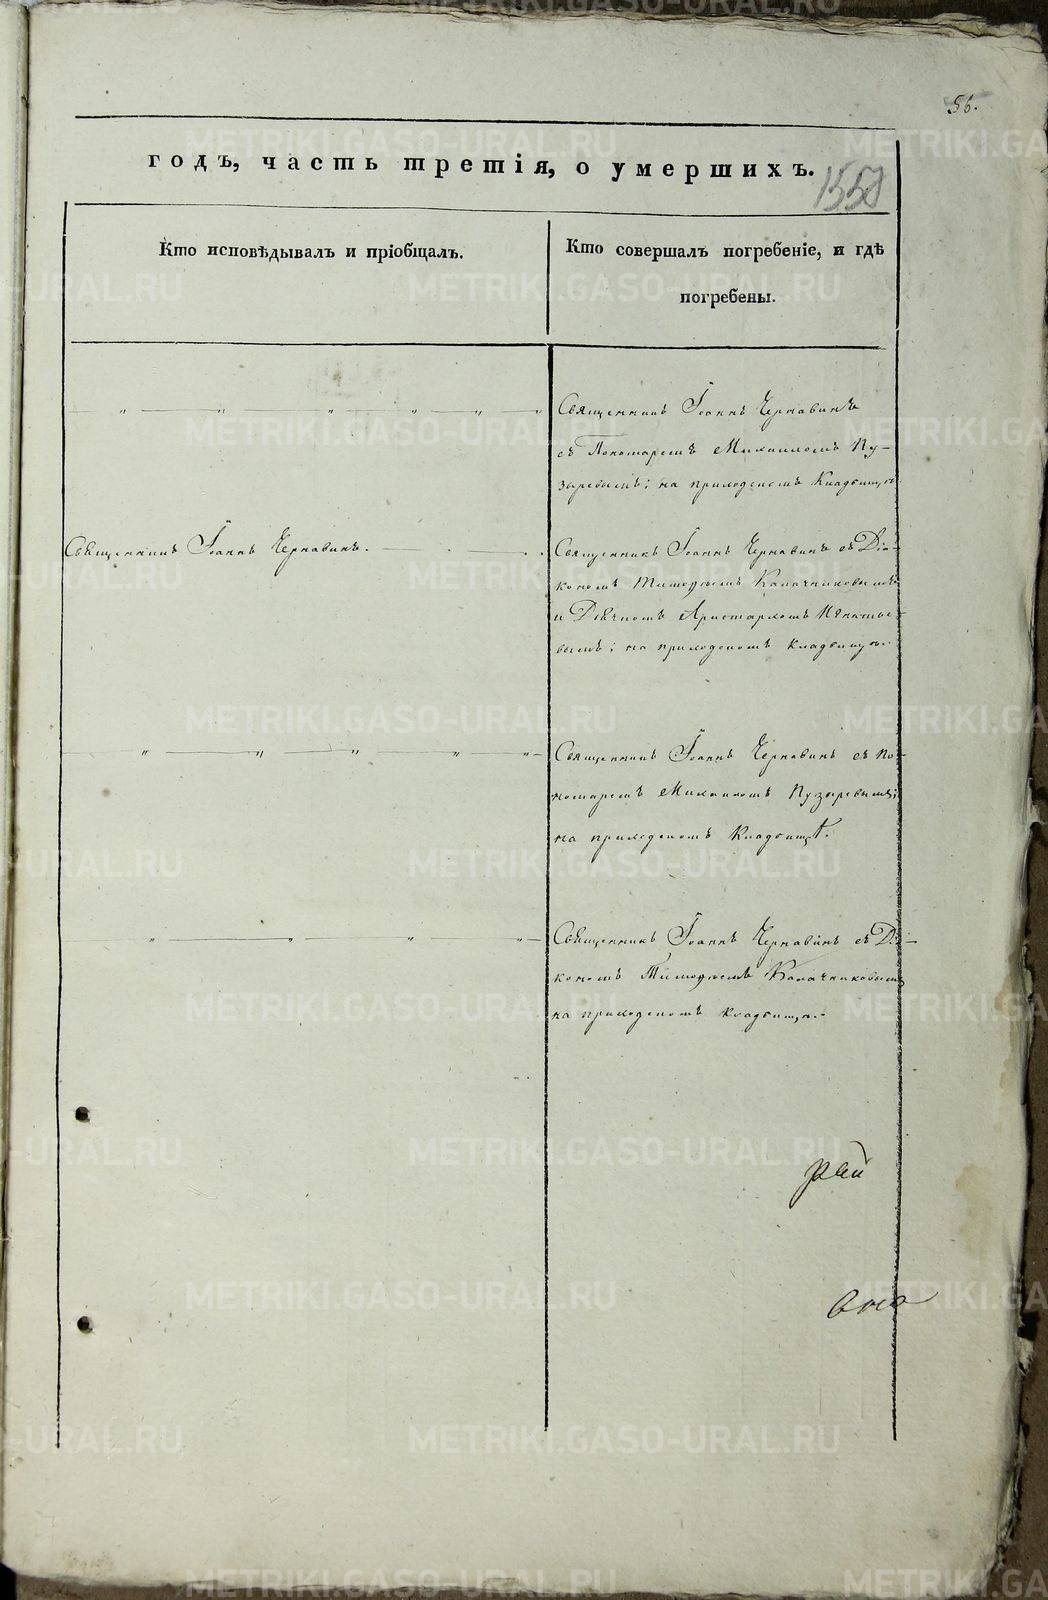 56.
годъ, часть третія, о умершихъ.
1558
Кто исповѣдывалъ и пріобщалъ.
Кто совершалъ погребеніе, и гдѣ
погребены.
Священникъ Іоаннъ Чернавинъ
съ Пономаремъ Михаиломъ Пу-
зыревымъ; на приходскомъ Кладбищѣ
Священникъ Іоаннъ Чернавинъ.
Священникъ Іоаннъ Чернавинъ съ Діа-
кономъ Тимоѳеемъ Калачниковымъ
и Дьячкомъ Аристархомъ
вымъ; на приходскомъ кладбищѣ.
Священникъ Іоаннъ Чернавинъ съ По-
номаремъ Михаиломъ Пузыревымъ;
на приходскомъ Кладбищѣ.
Священникъ Іоаннъ Чернавинъ съ Діа-
кономъ Тимоѳеемъ Калачниковымъ
на приходскомъ Кладбищѣ.
METRIKI.GASO-URAL.RU